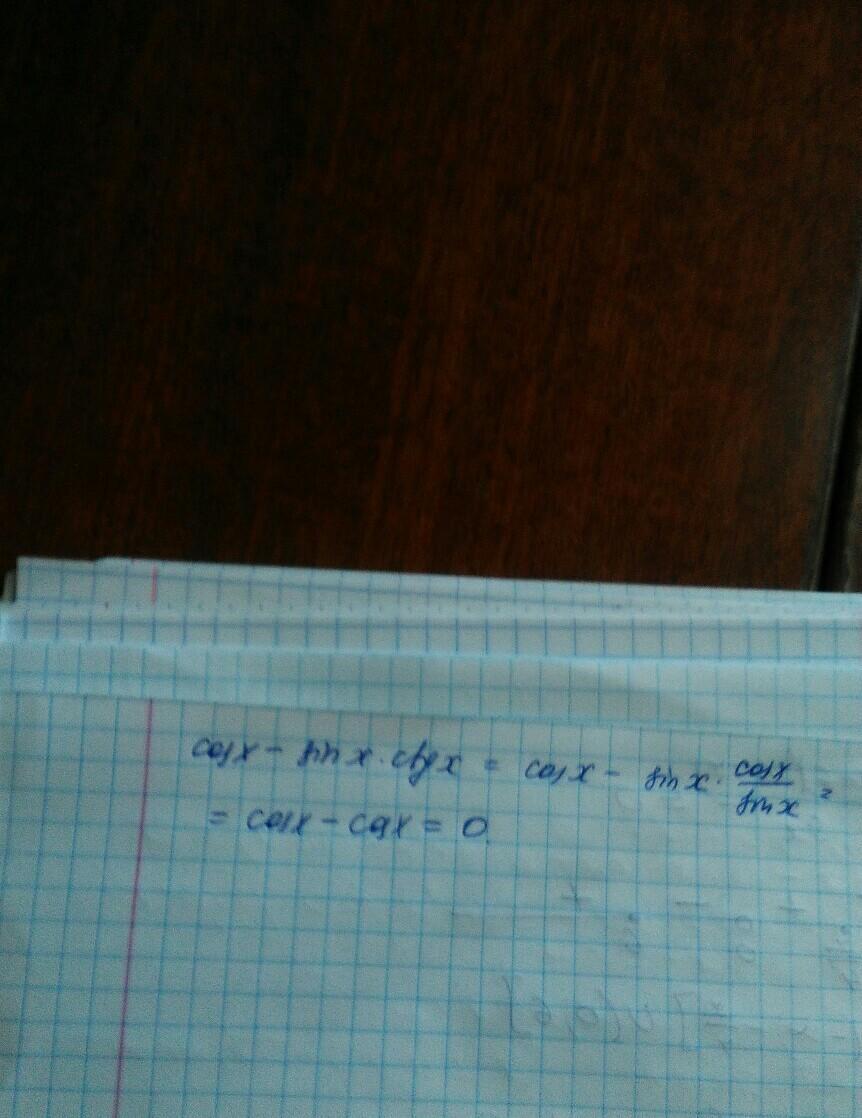 cosx - sin x · ctgx = cosx - sin x · cosx/sinx =
= cosx - cosx = 0